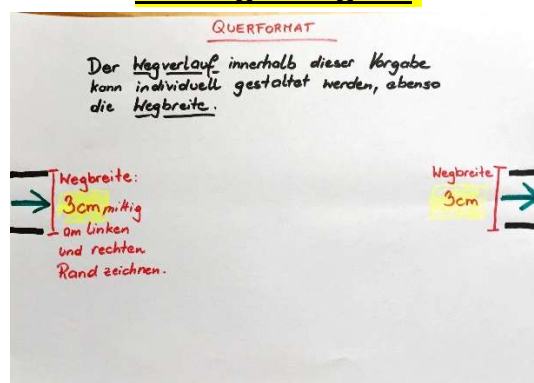 QUERFORMAT
Der Wegverlauf innerhalb dieser Vorgabe
kann individuell gestaltet werden, ebenso
die Wegbreite.
Wegbreite:
3cm mittig
am linken
und rechten
Rand zeichnen.
Wegbreite
3cm